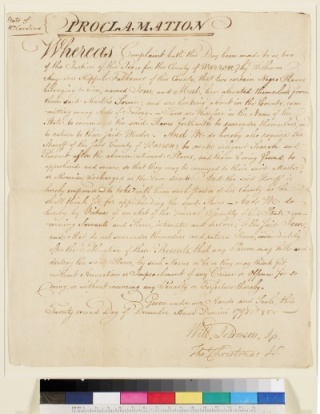 State of
No Carolina
PROCLAMATION
Whereas Complaint hath this Day been made to us two
of the Justices of the Peace for the County of Warren, by William
of the County that two certain Negro Slaves
belonging to him, named Tom, and have absented themselves from
their said Master's Service, and are lurking about in the Countys, com-
mitting many Acts of Felony; These are therefore in the Name of the
State, to command the said Slaves forthwith to surrender themselves,
to return to their said Master. And We do hereby also require the
Sheriff of the said County of Warren, to make diligent Search and
Pursuit after the abovementioned Slaves, and them having found, to
apprehend and secure so that they may be conveyed to their said Master,
or otherwise discharged as the Law directs. And the said Sheriff is
hereby impowered to take with him such of the County as he
shall think fit for apprehending the said Slaves. And We do
hereby by Virtue of an Act of the General Assembly of this State con-
cerning Servants and Slaves, intimate and declare, if the said Tom,
and do not surrender themselves and return home, immediately
after the Publication of these Presents, that any Person may kill and
destroy the said Slaves, by such Means as he or they may think fit
without Accusation or Impeachment of any Crime or Offence for so
doing, or without incurring any Penalty or Forfeiture thereby.
Given under our Hands and Seals, this
Twenty second Day of December Anno Domini
Will Johnson, Jp
Tho Christmas Jp